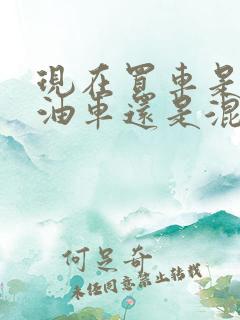 現在買車是
油車還是混
何足奇
未經同意禁止轉載